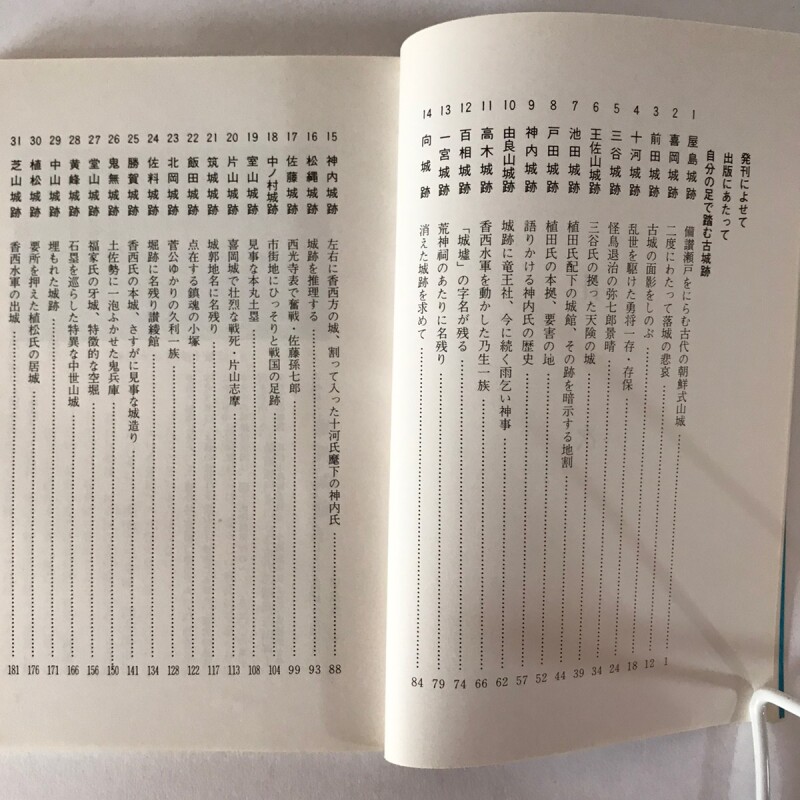 発刊によせて
出版にあたって
自分の足で踏む古城跡
1 屋島城跡 備讃瀬戸をにらむ古代の朝鮮式山城 1
2 喜岡城跡 二度にわたって落城の悲哀 12
3 前田城跡 古城の面影をしのぶ 18
4 十河城跡 乱世を駆けた勇将一存・存保 24
5 三谷城跡 怪鳥退治の弥七郎景晴 34
6 王佐山城跡 三谷氏の拠った天険の城 39
7 池田城跡 植田氏配下の城館、その跡を暗示する地割 44
8 戸田城跡 植田氏の本拠、要害の地 52
9 神内城跡 語りかける神内氏の歴史 57
10 由良山城跡 城跡に竜王社、今に続く雨乞い神事 62
11 高木城跡 香西水軍を動かした乃生一族 66
12 百相城跡 「城墟」の字名が残る 74
13 一宮城跡 荒神祠のあたりに名残り 79
14 向城跡 消えた城跡を求めて 84
15 神内城跡 左右に香西方の城、割って入った十河氏麾下の神内氏 88
16 松縄城跡 城跡を推理する 93
17 佐藤城跡 西光寺表で奮戦・佐藤孫七郎 99
18 中ノ村城跡 市街地にひっそりと戦国の足跡 104
19 室山城跡 見事な本丸土塁 108
20 片山城跡 喜岡城で壮烈な戦死・片山志摩 113
21 筑城城跡 城郭地名に名残り 117
22 飯田城跡 点在する鎮魂の小塚 122
23 北岡城跡 菅公ゆかりの久利一族 128
24 佐料城跡 堀跡に名残り讃綾館 134
25 勝賀城跡 香西氏の本城、さすがに見事な城造り 141
26 鬼無城跡 土佐勢に一泡ふかせた鬼兵庫 150
27 堂山城跡 福家氏の牙城、特徴的な空堀 156
28 黄峰城跡 石塁を巡らした特異な中世山城 166
29 中山城跡 埋もれた城跡 171
30 植松城跡 要所を押えた植松氏の居城 176
31 芝山城跡 香西水軍の出城 181